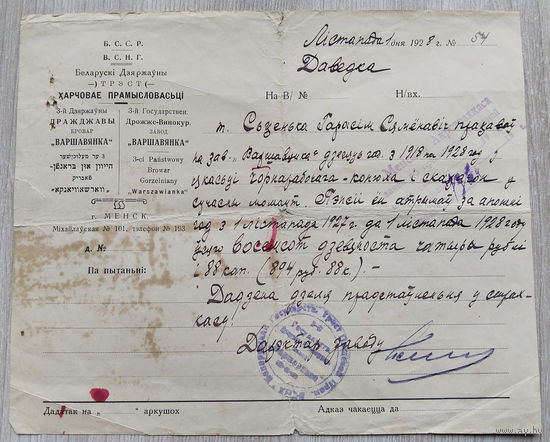 Б. С. С. Р.
В. С. Н. Г.
Беларускі Дзяржаўны
—) ТРЭСТ (—
ХАРЧОВАЕ ПРАМЫСЛОВАСЬЦІ
3-й Дзяржаўны
ДРАЖДЖАВЫ
БРОВАР
"ВАРШАВЯНКА"
3-й Государствен.
Дрожже-Винокур.
ЗАВОД
"ВАРШАВЯНКА"
3-ci Państwowy
Browar
Gorzelniany
"Warszawianka"
г. МЕНСК.
Міхайлаўская № 101, телефон № 193
Д. №
Па пытаньні:
Лістапада 1 дня 1928 г. № 54
Даведка
На В/ № Н/вх.
т. Сьзенька Гарасім Сямёнавіч працаваў
на зав. "Варшавянка" дзецяць год з 1918 па 1928 год у
якасьці Чорнарабочага-конюха і
сучасны момант. Пэнсіі ён атрымаў за апошні
год з 1 лістапада 1927 г. да 1 лістапада 1928 году
усяго восемсот дзевяноста чатыры рублі
і 88 кап. (894 руб. 88 к.). —
Дадзена дзеля прадстаўленьня у страх-
касу.
Дырэктар заводу
Дадатак на " " аркушох
Адказ чакаецца да